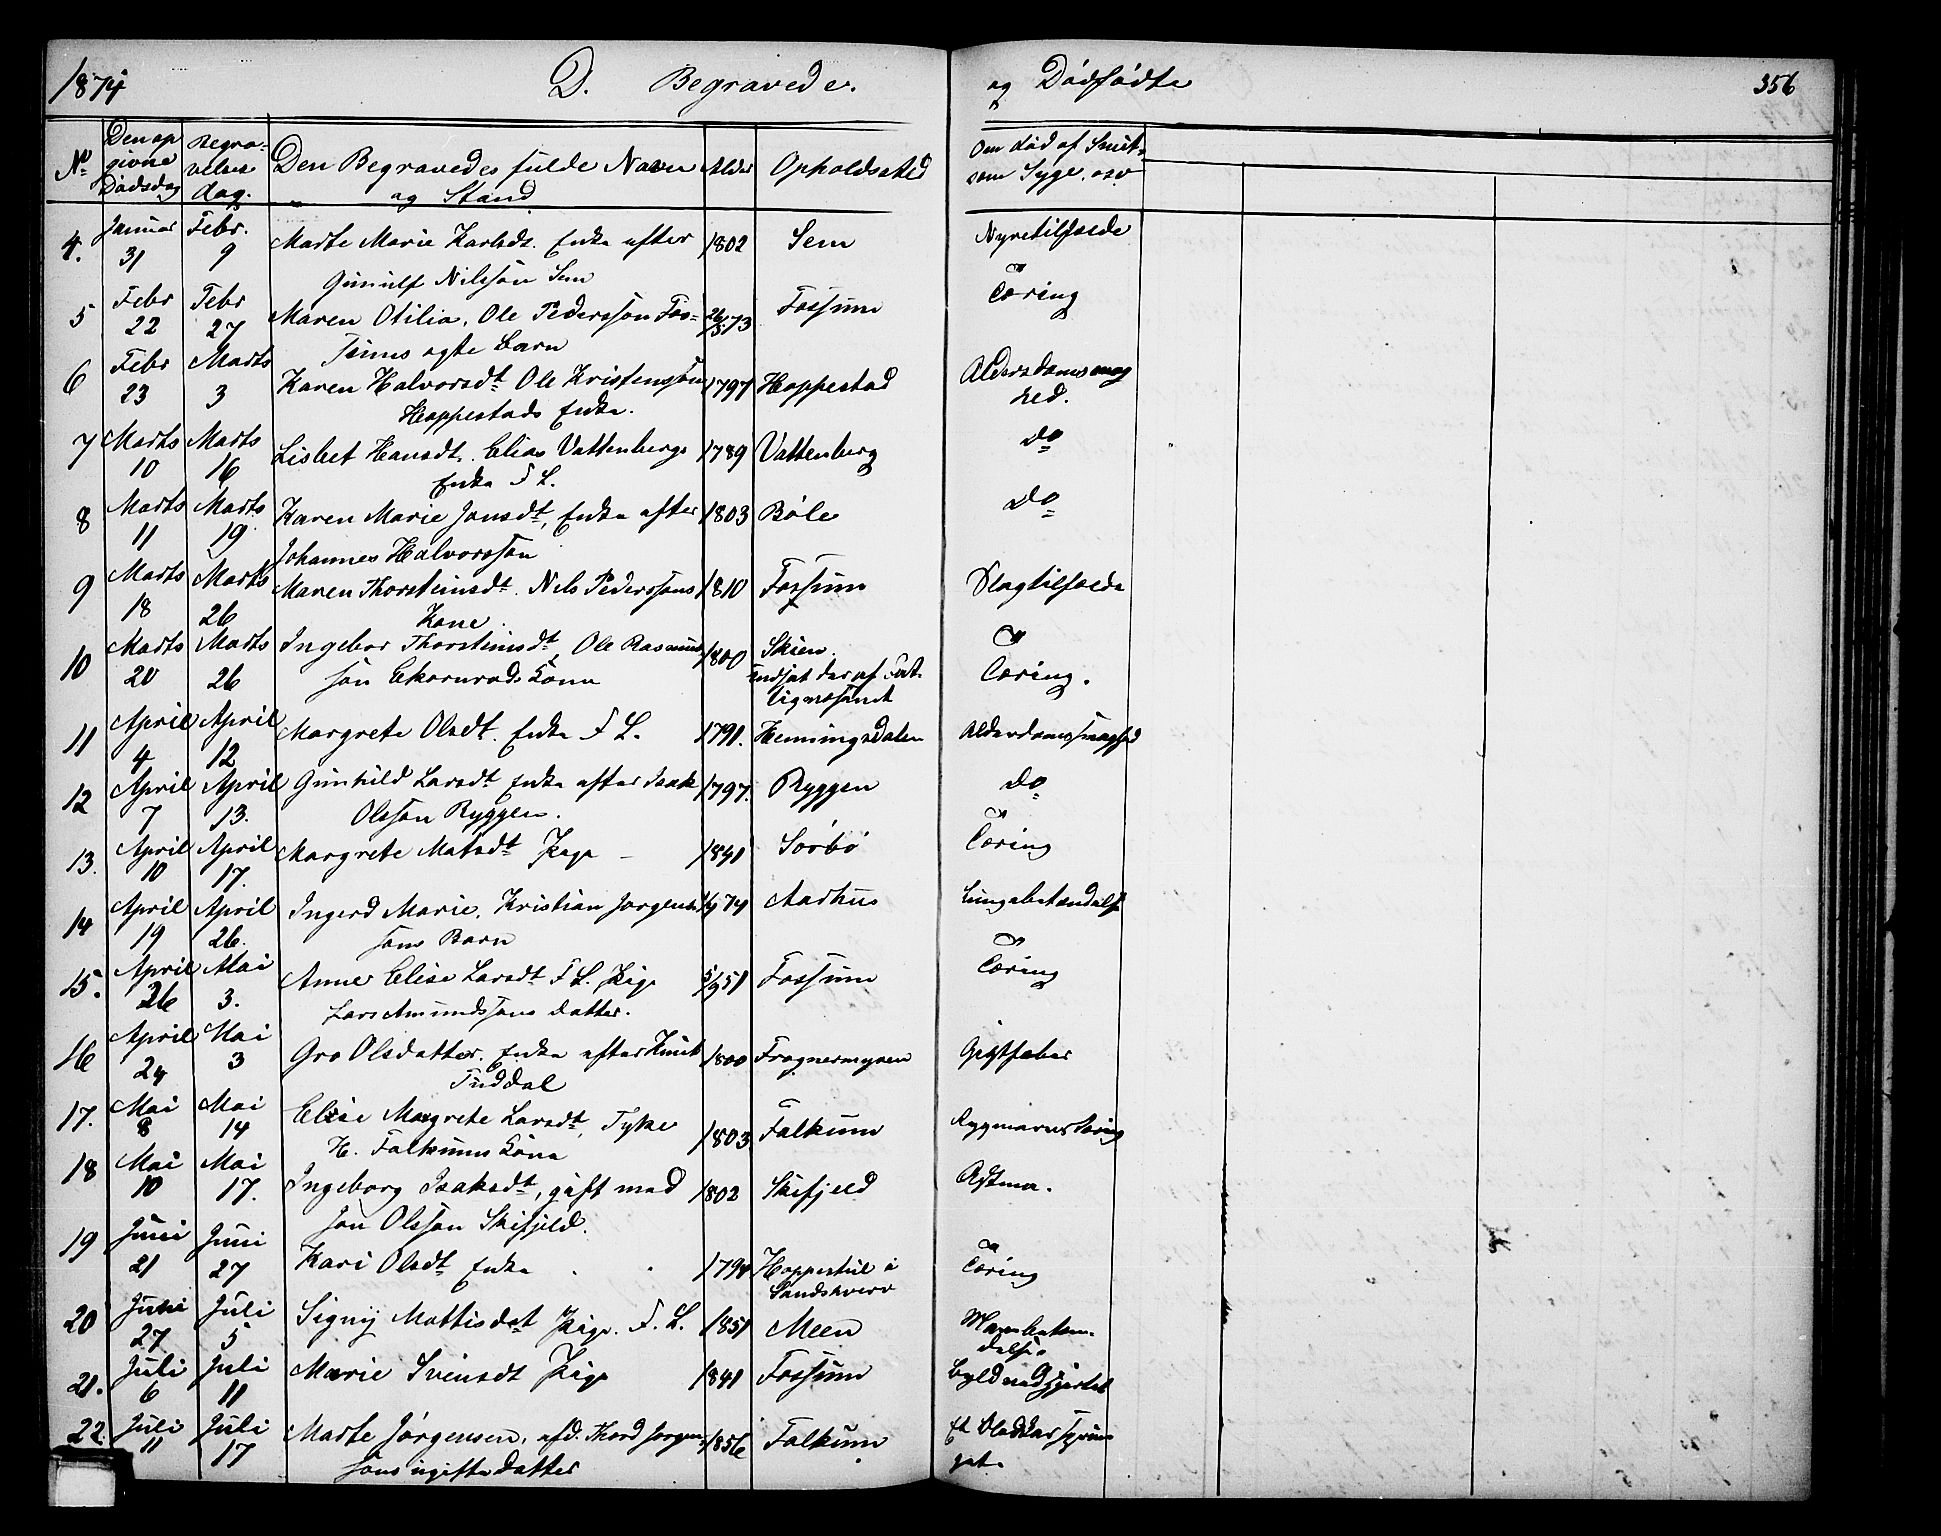 1874 D. Begravede. og Dødfødte 356
No Den op givne Dødsdag Begravelses dag. Den Begravedes fulde Navn og Stand Alder Opholdssted Om død af Smitsom Syge, osv
4. Januar 31 Febr. 9 Marte Marie Karlsdt. Enke efter 1802 Sem Nyretilfælde
Gunulf Nilsson Sem
5 Febr 22 Febr 27 Maren Otilia, Ole Pedersson Fos= 26/5 73 Fossum Tæring
sums ægte Barn
6 Febr 23 Marts 3 Karen Halvorsdt Ole Kristensson 1797 Hoppestad Alderdomssvag
Hoppestads Enke. hed.
7 Marts 10 Marts 16 Lisbet Hansdt. Elias Vattenbergs 1789 Vattenberg do
Enke F. L.
8 Marts 11 Marts 19. Karen Marie Jonsdt, Enke efter 1803 Bøle do
Johannes Halvorsson
9 Marts 18 Marts 26 Maren Thorsteinsdt. Nils Pederssons 1810 Fossum Slagtilfælde
Kone.
10 Marts 20 Marts 26 Ingebor Thorsteinsdt, Ole Rasmus 1800 Skien. Tæring.
søn Ekornrøds Kone indsat der af Fat-
tigvæsenet
11 April 4 April 12 Margrete Olsdt. Enke F. L. 1791. Henningsdalen Alderdomssvaghed
12 April 7 April 13. Gunhild Larsdt Enke efter Isak 1797. Ryggen do
Olsson Ryggen.
13. April 10 April 17. Margrete Matsdt Pige – 1841 Sørbø Tæring
14 April 19 April 26. Ingerd Marie, Kristian Jørgen 74 Aarhus Lungebetændelse
sons Barn
15. April 26 Mai 3. Anne Elise Larsdt F. L. Pige 5/9 51 Fossum Tæring
Lars Amundssons datter.
16 April 24 Mai 3 Gro Olsdatter. Enke efter Knut 1800 Frognermyren Gigtfeber
Tuddal
17. Mai 8 Mai 14 Elise Margrete Larsdt, Tyke 1803 Falkum Rygmarvstæring
H. Falkums Kone
18 Mai 10 Mai 17. Ingeborg Isaksdt, gift med 1802 Skifjeld Astma.
Jon Olsson Skifjeld.
19 Juni 21 Juni 27 Kari Olsdt Enke 1794 Hoppestul i Tæring
Sandsverv
20 Juni 27 Juli 5 Signy Mattisdat Pige. F. L. 1851 Meen Mavebetæn-
delse.
21. Juli 6 Juli 11 Marie Svensdt Pige 1841 Fossum Byld ved Hjertet
22. Juli 11 Juli 17 Marte Jørgensen, afd. Thord Jørgen- 1856 Falkum Et Blodkar sprun
sons ugifte datter get.